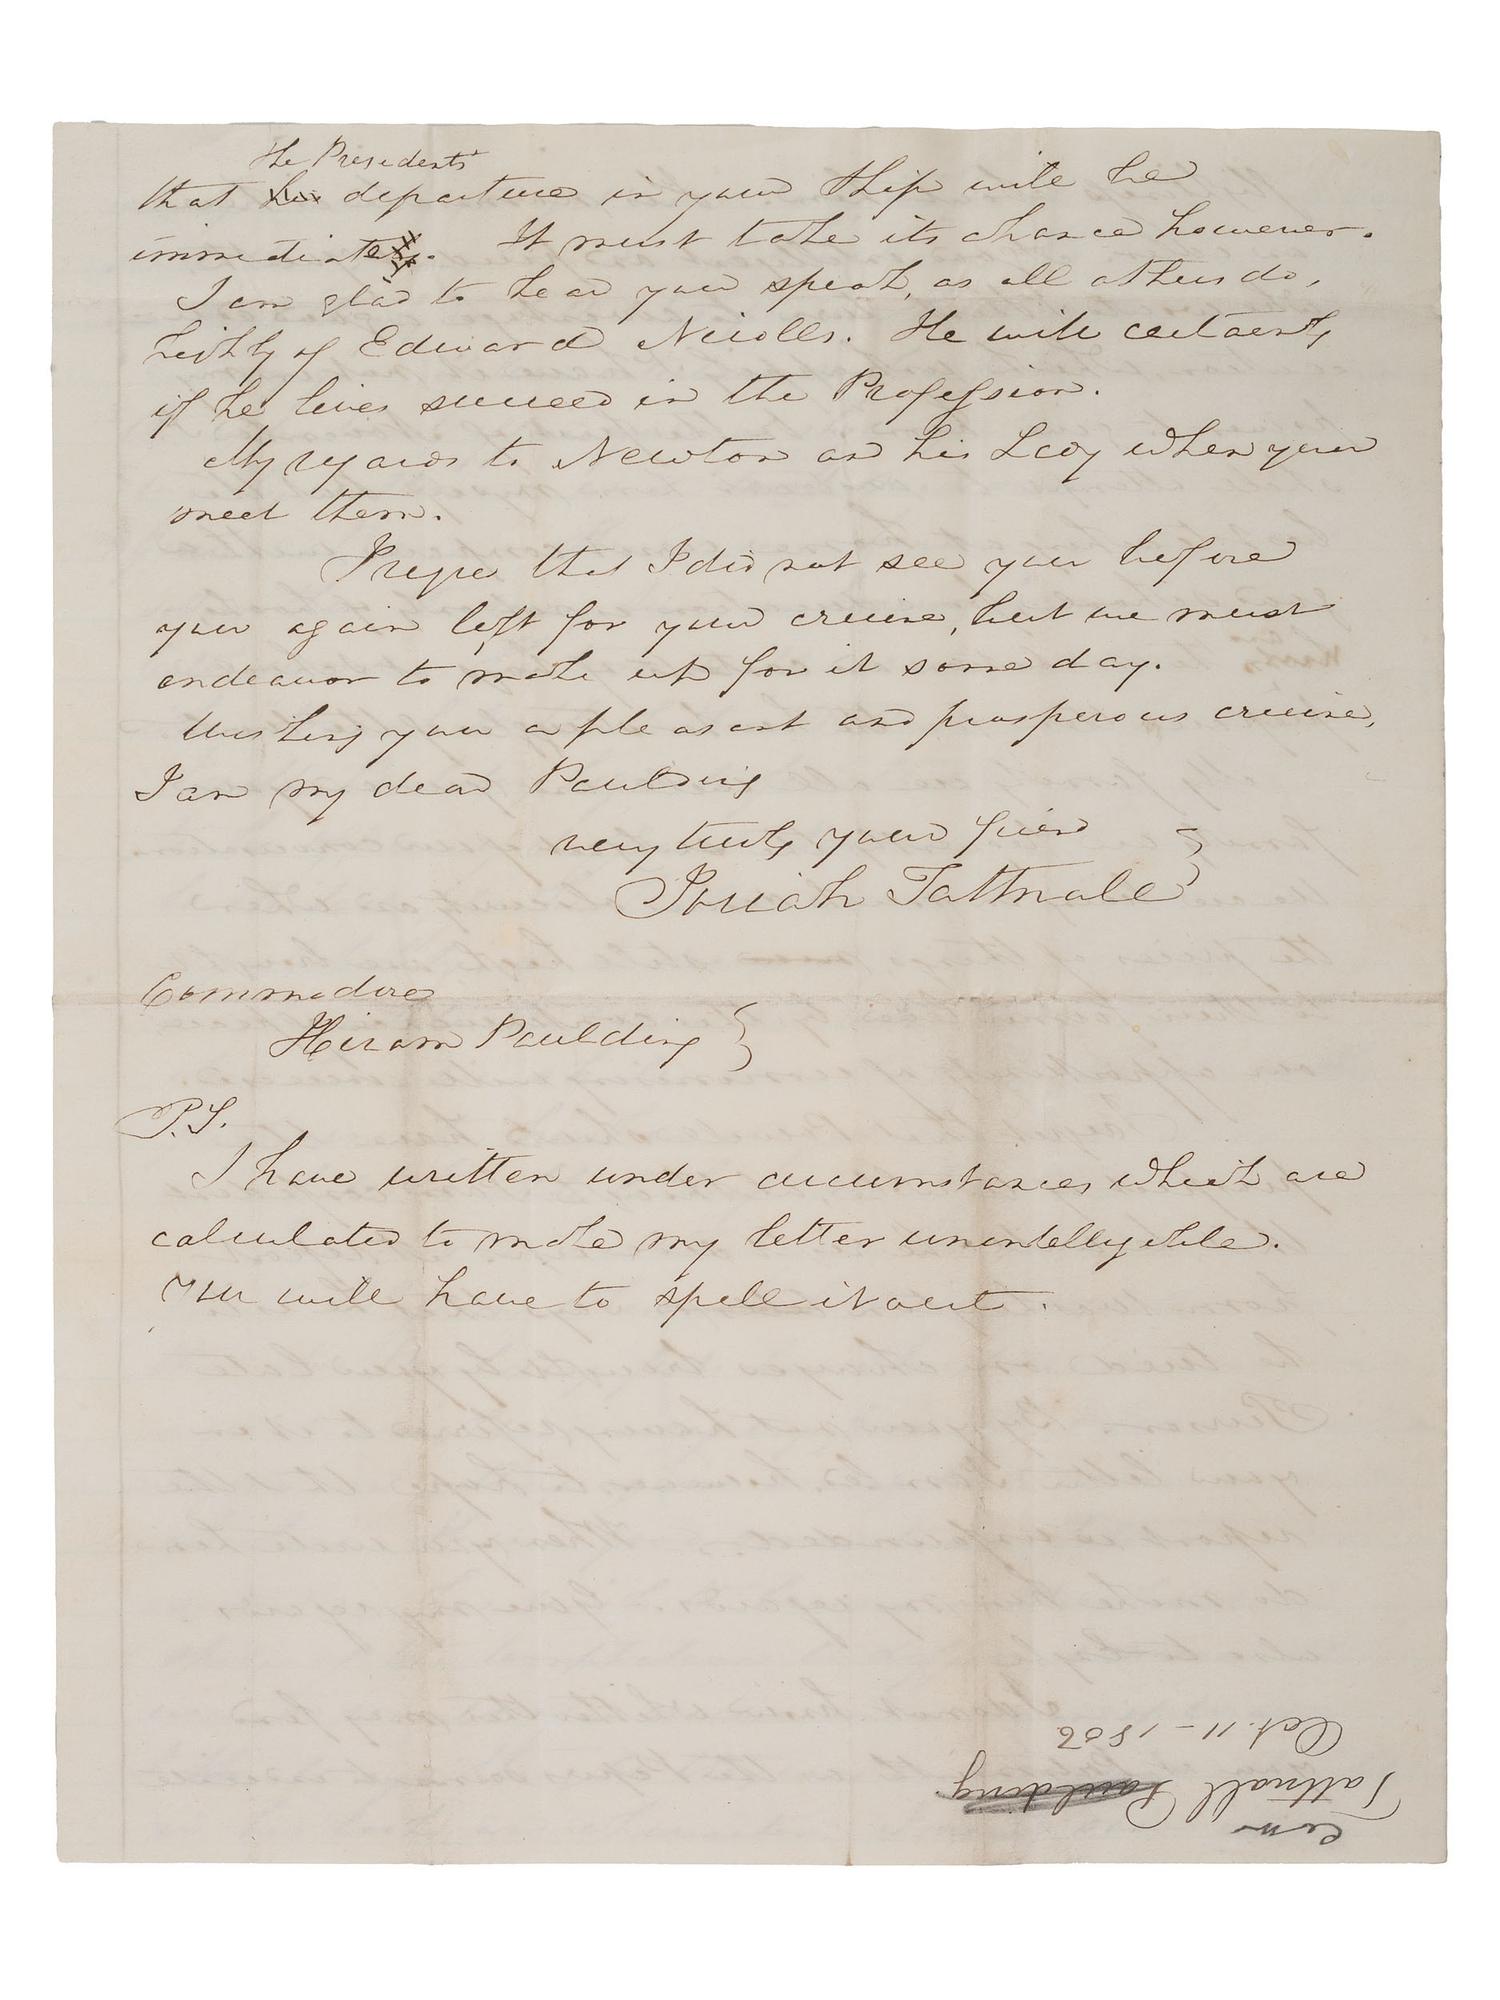 the Presidents
that his departure in your Ship will be
immediate. It must take its chance however.
I am glad to hear you speak, as all others do,
highly of Edward Nicolls. He will certainly
if he lives succeed in the Profession.
My regards to Newton and his Lady when you
meet them.
I regret that I did not see you before
you again left for your cruise, but we must
endeavor to make up for it some day.
Wishing you a pleasant and prosperous cruise,
I am my dear Paulding
very truly your friend
Josiah Tattnall
Commodore
Hiram Paulding
P.S.
I have written under circumstances which are
calculated to make my letter unintelligible.
You will have to spell it out.
Com
Tattnall Paulding
Oct. 11 - 1856